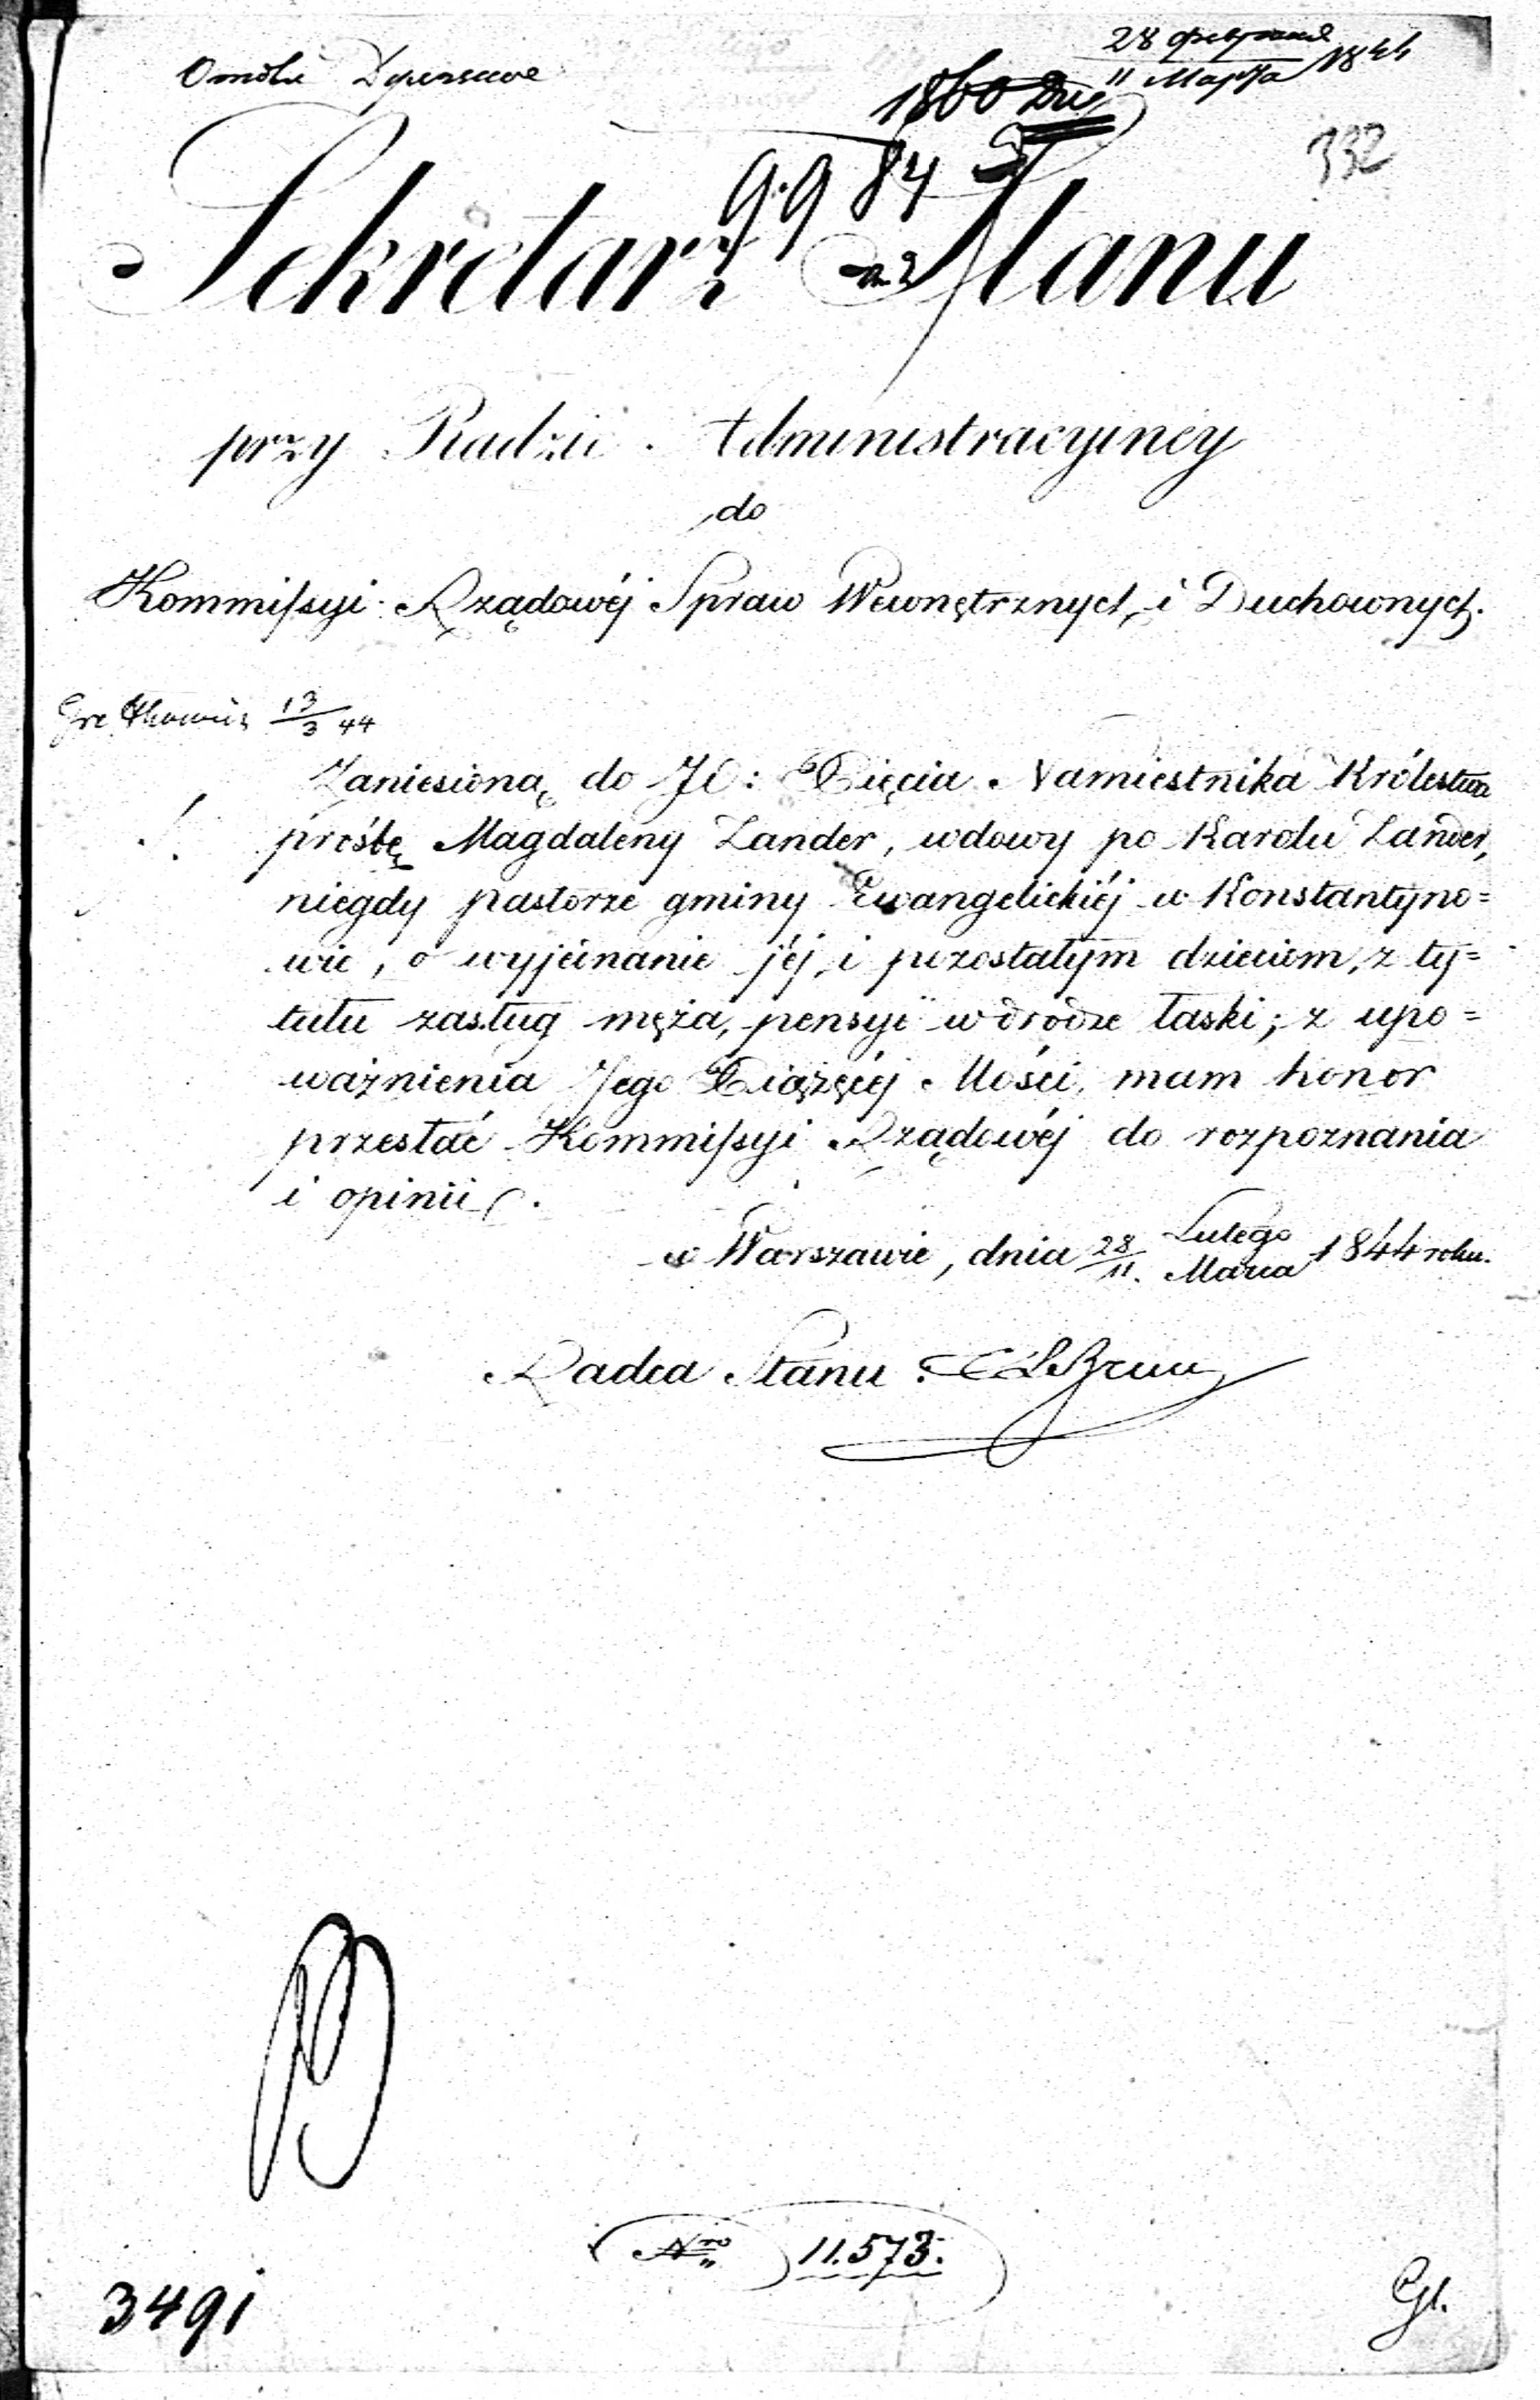 28 февраля
11 Марта 1844
1860
332
9984
Sekretarz Stanu
przy Radzie Administracyiney
do
Kommissyi Rządowéj Spraw Wewnętrznych i Duchownych.
13/3 44
Zaniesioną do JO: Xięcia Namiestnika Królestwa
prośbę Magdaleny Lander, wdowy po Karolu Lander,
niegdy pastorze gminy Ewangelickiéj w Konstantyno=
wie, o wyjednanie jéj, i pozostałym dzieciom, z ty=
tułu zasług męża, pensyi w drodze łaski; z upo=
ważnienia Jego Xiążęcéj Mości, mam honor
przesłać Kommissyi Rządowéj do rozpoznania
i opinii.
w Warszawie, dnia 28/11. Lutego/Marca 1844 roku.
Radca Stanu
Nro 11.573.
3491
Gl.